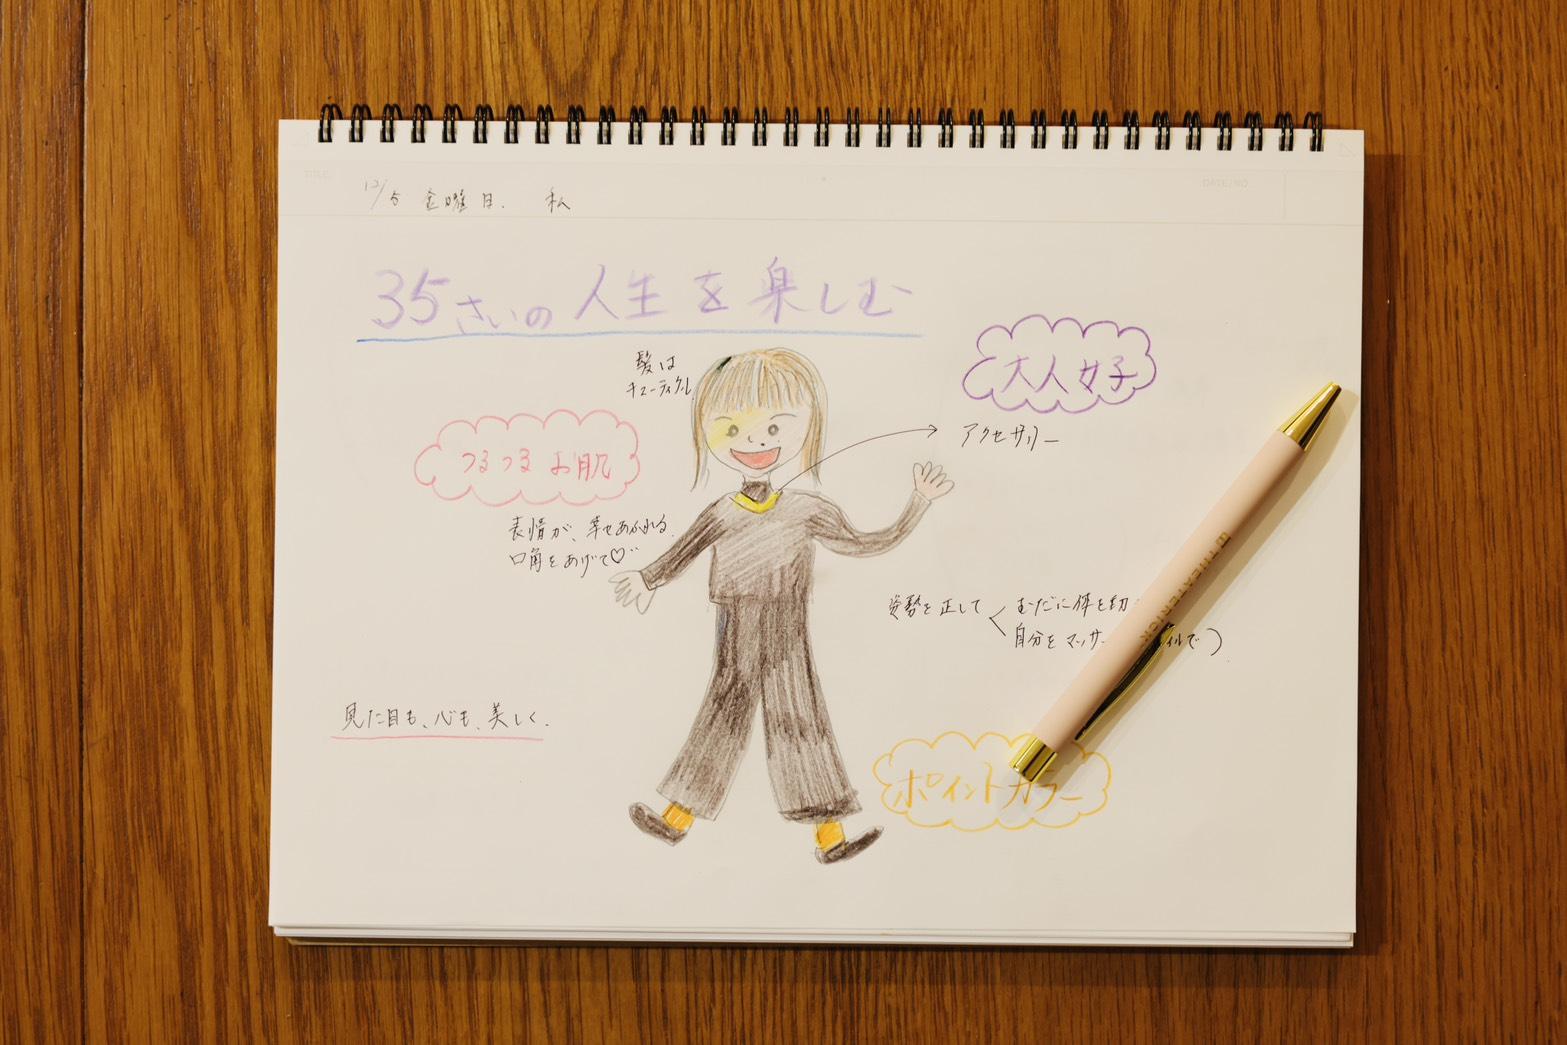 TITLE
DATE/NO.
12/5 金曜日. 私
35さいの人生を楽しむ
大人女子
髪は
キューティクル
アクセサリー
つるつるお肌
表情が、幸せあふれる.
口角をあげて♡
姿勢を正して
むだに体を動
自分をマッサー イルで)
見た目も、心も、美しく.
ポイントカラー